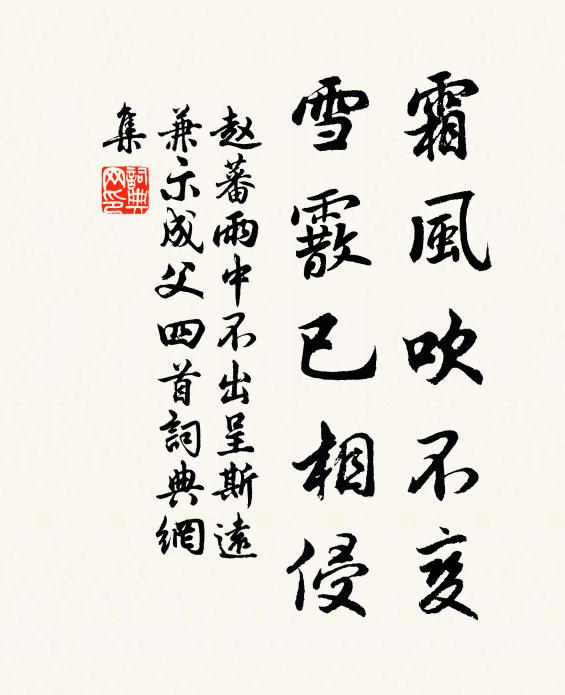 霜風吹不变
雪霰已相侵
赵蕃雨中不出呈斯遠
兼示成父四首詞典網
集
詞典
网印